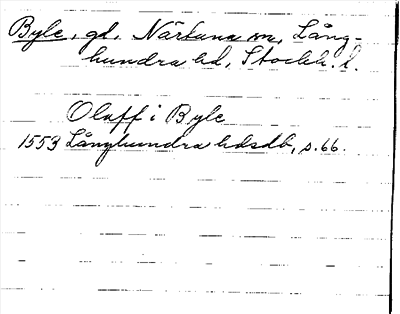 Byle, gd, Närtuna sn, Lång-
hundra hd, Stockh. l.
Olaff i Byle
1553 Långhundra hdsdb, s. 66.